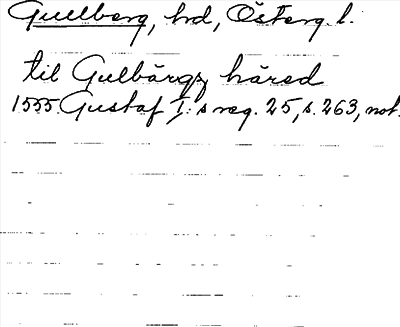 Gullberg, hd, Österg. l.
til Gulbärgz häred
1555 Gustaf I:s reg. 25, s. 263, not.